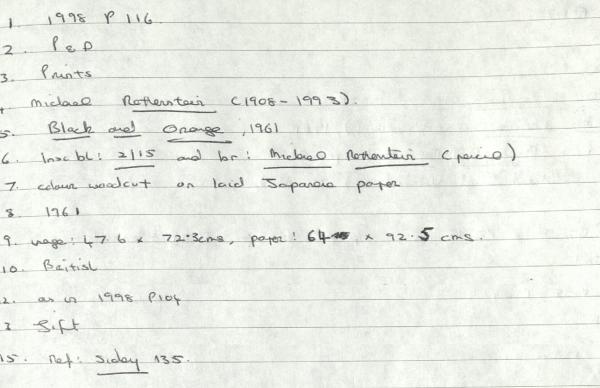 1. 1998 P 116.
2. P & D
3. Prints
4. Michael Rothenstein (1908-1993).
5. Black and Orange, 1961
6. Inscr bl: 2/15 and br: Michael Rothenstein (pencil)
7. colour woodcut on laid Japanese paper
8. 1961
9. image: 47.6 x 72.3cms, paper: 64 x 92.5 cms.
10. British
2. as in 1998 P104
3 Gift
15. Ref: Sidey 135.